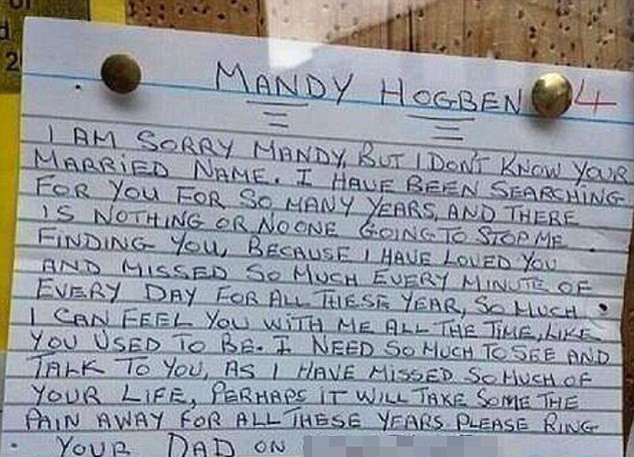 MANDY HOGBEN 4
I AM SORRY MANDY, BUT I DON'T KNOW YOUR
MARRIED NAME. I HAVE BEEN SEARCHING
FOR YOU FOR SO MANY YEARS, AND THERE
IS NOTHING OR NOONE GOING TO STOP ME
FINDING YOU, BECAUSE I HAVE LOVED YOU
AND MISSED SO MUCH EVERY MINUTE OF
EVERY DAY FOR ALL THESE YEAR, SO MUCH
I CAN FEEL YOU WITH ME ALL THE TIME, LIKE
YOU USED TO BE. I NEED SO MUCH TO SEE AND
TALK TO YOU, AS I HAVE MISSED SO MUCH OF
YOUR LIFE, PERHAPS IT WILL TAKE SOME THE
PAIN AWAY FOR ALL THESE YEARS PLEASE RING
YOUR DAD ON